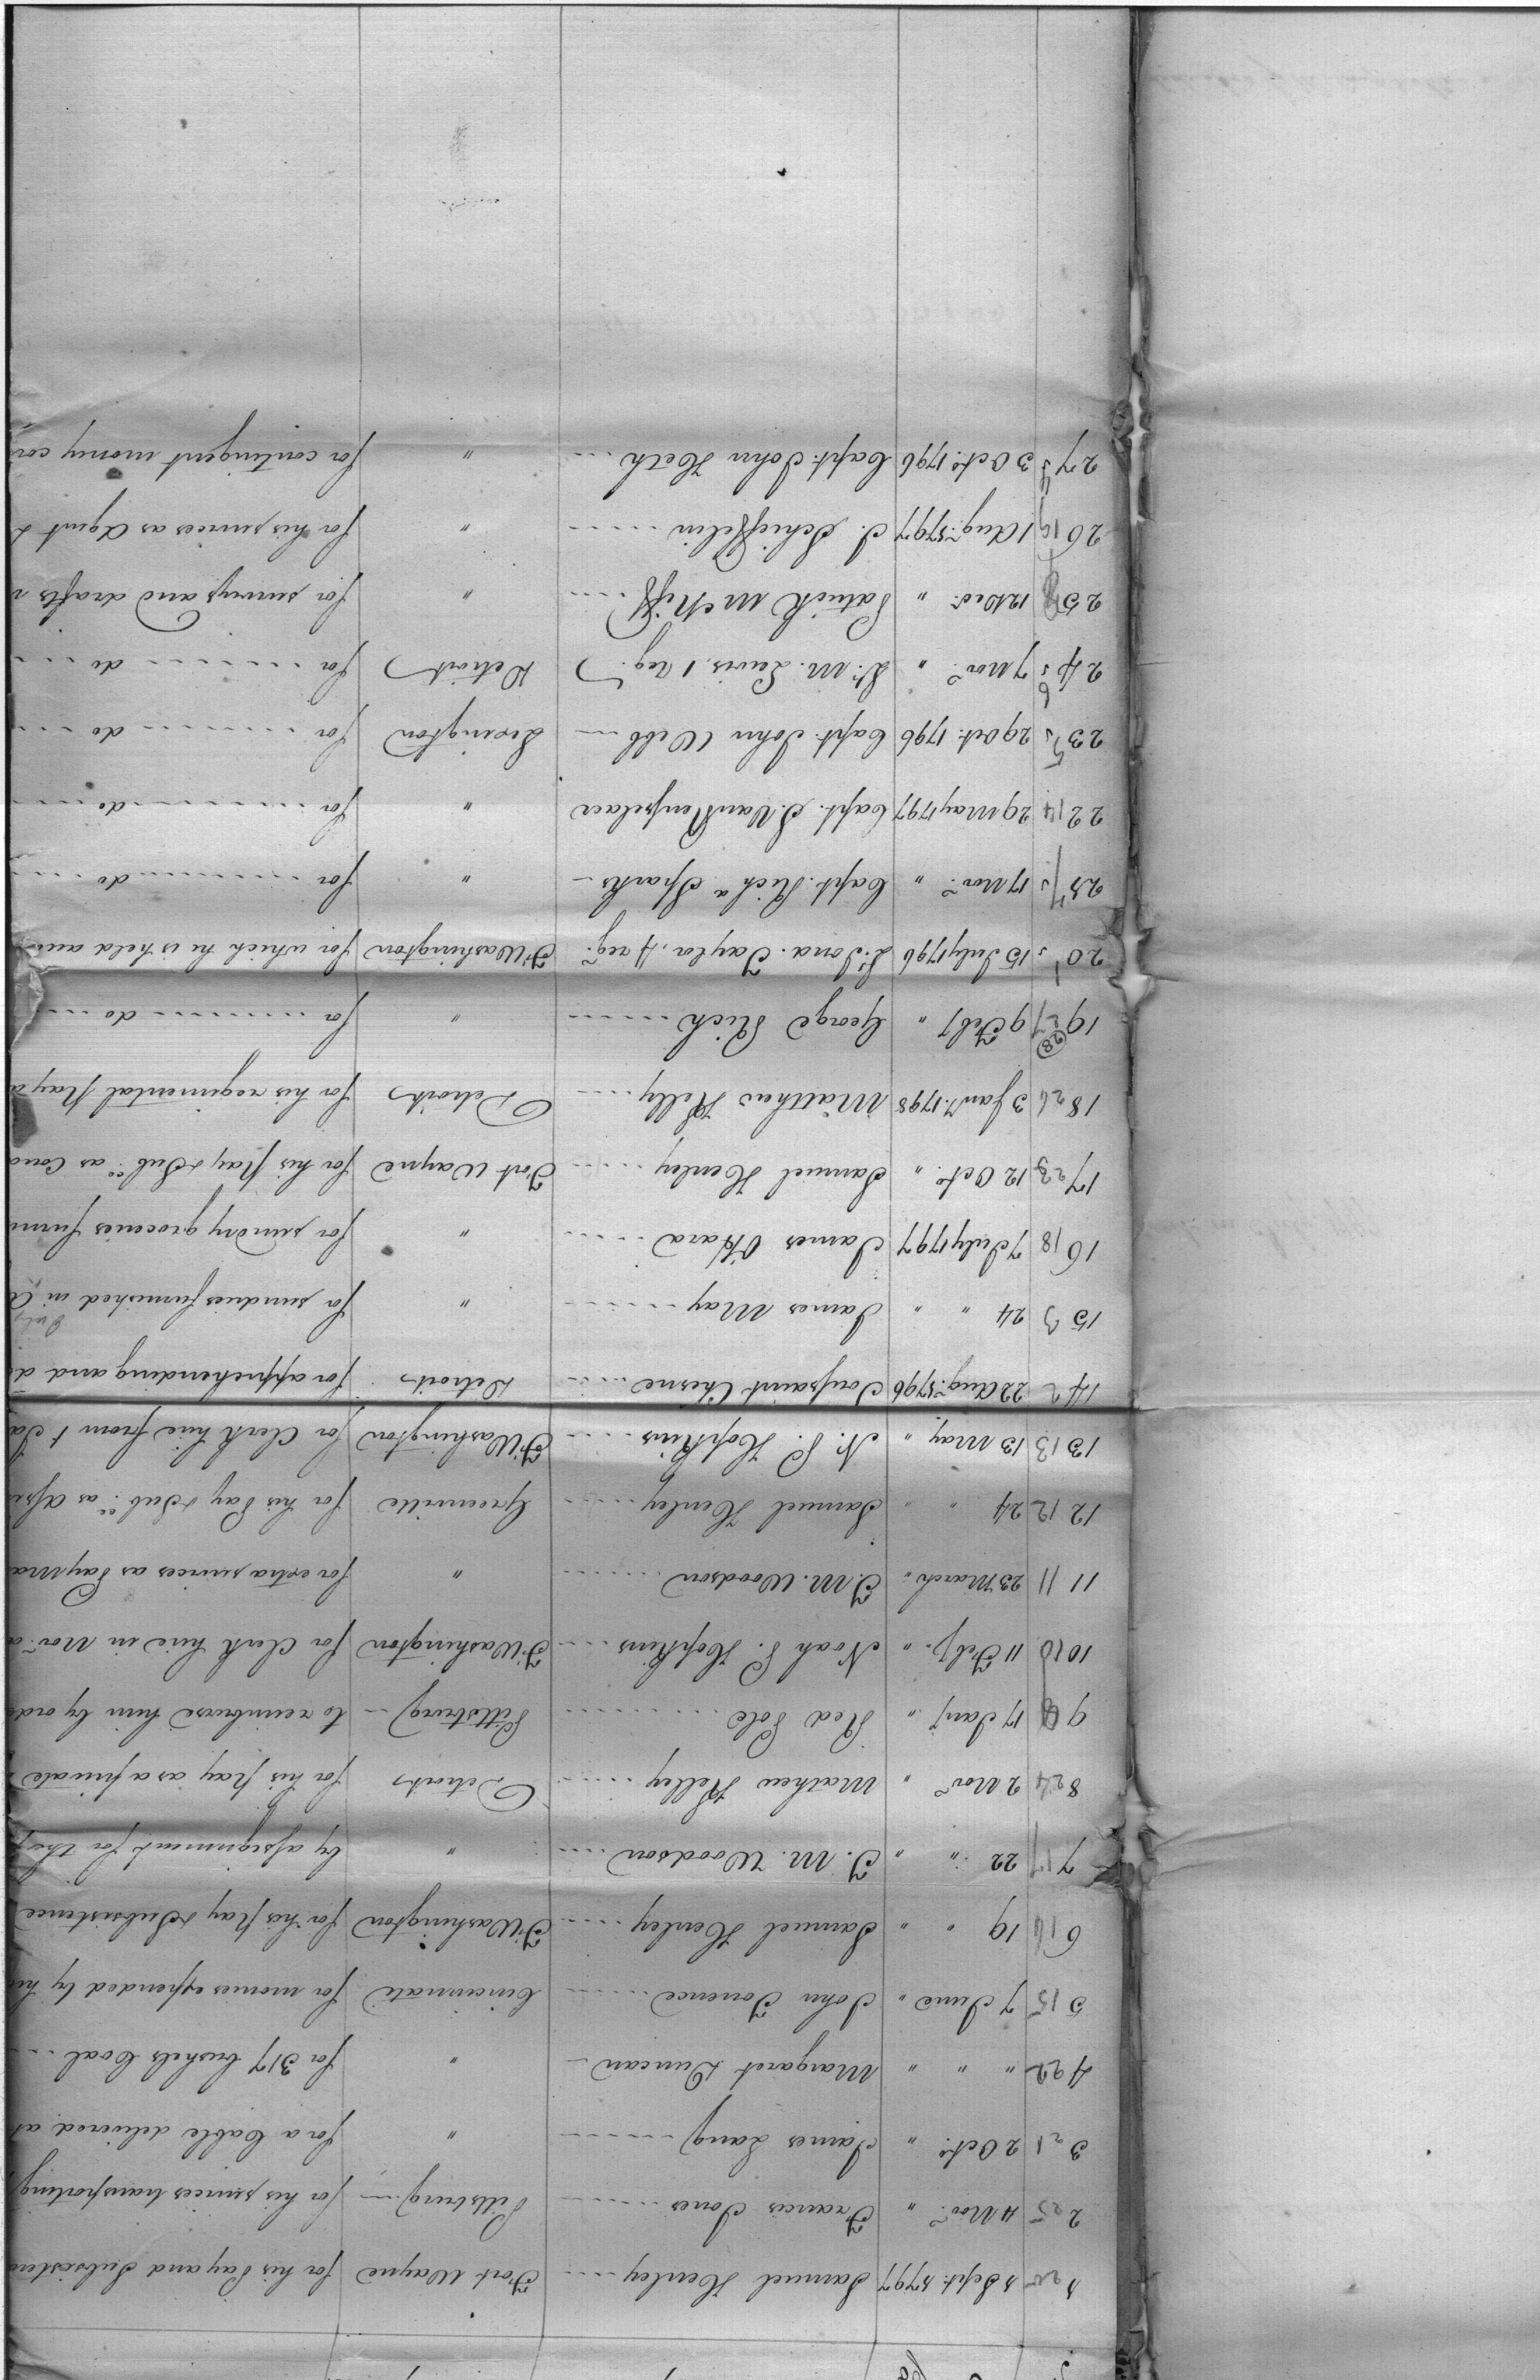 1 20 1 Sept. 1797 Samuel Henley Fort Wayne for his Pay and Subsisten
2 25 4 Nov.r " Francis Jones Pittsburg for his services transporting
3 21 2 Octo. " James Lang " for a Cable delivered at
4 22 " " " Margaret Duncan " for 317 bushels Coal
5 15 7 June " John Torrence Cincinnati for monies expended by hi
6 16 19 " " Samuel Henley Ft Washington for his pay & Subsistence
7 17 22 " " T. M. Woodson " by assignment for the
8 24 2 Nov.r " Mathew Kelley Detroit for his pay as a private
9 17 Jany " Red Pole Pittsburg to reimburse him by ord
10 10 11 Feby. " Noah P. Hopkins Ft Washington for Clerk hire in Nov.r a
11 11 23 March " T. M. Woodson " for extra services as Pay Ma
12 12 24 " " Samuel Henley Greenville for his Pay & Sub.ce as
13 13 13 May " N. P. Hopkins Ft Washington for Clerk hire from 1 Ja
14 2 22 Aug. 1796 Toussaint Chesne Detroit for apprehending and d
15 3 24 " " James May " for sundries furnished in
16 18 7 July 1797 James O'Hara " for sundry groceries furni
17 23 12 Octo. " Samuel Henley Fort Wayne for his pay & Sub.ce as Con
18 26 3 Jany. 1798 Matthew Kelly Detroit for his regimental pay a
19 27 (28) 9 Feby " George Rich " for do
20 1 15 July 1796 Lt. Jona. Taylor, 4 reg.t Ft Washington for which he is held acc
21 17 Nov.r " Capt. Rich.d Sparks " for do
22 14 29 May 1797 Capt. S. Van Rensselaer " for do
23 5 29 Oct. 1796 Capt. John Webb Lexington for do
24 6 7 Nov.r " Lt. M. Lewis, 1 reg.t Detroit for do
25 12 Dec. " Patrick McNiff " for surveys and drafts
26 19 1 Aug. 1797 J. Schieffelin " for his services as Agent
27 4 3 Octo. 1796 Capt. John Heth " for contingent money